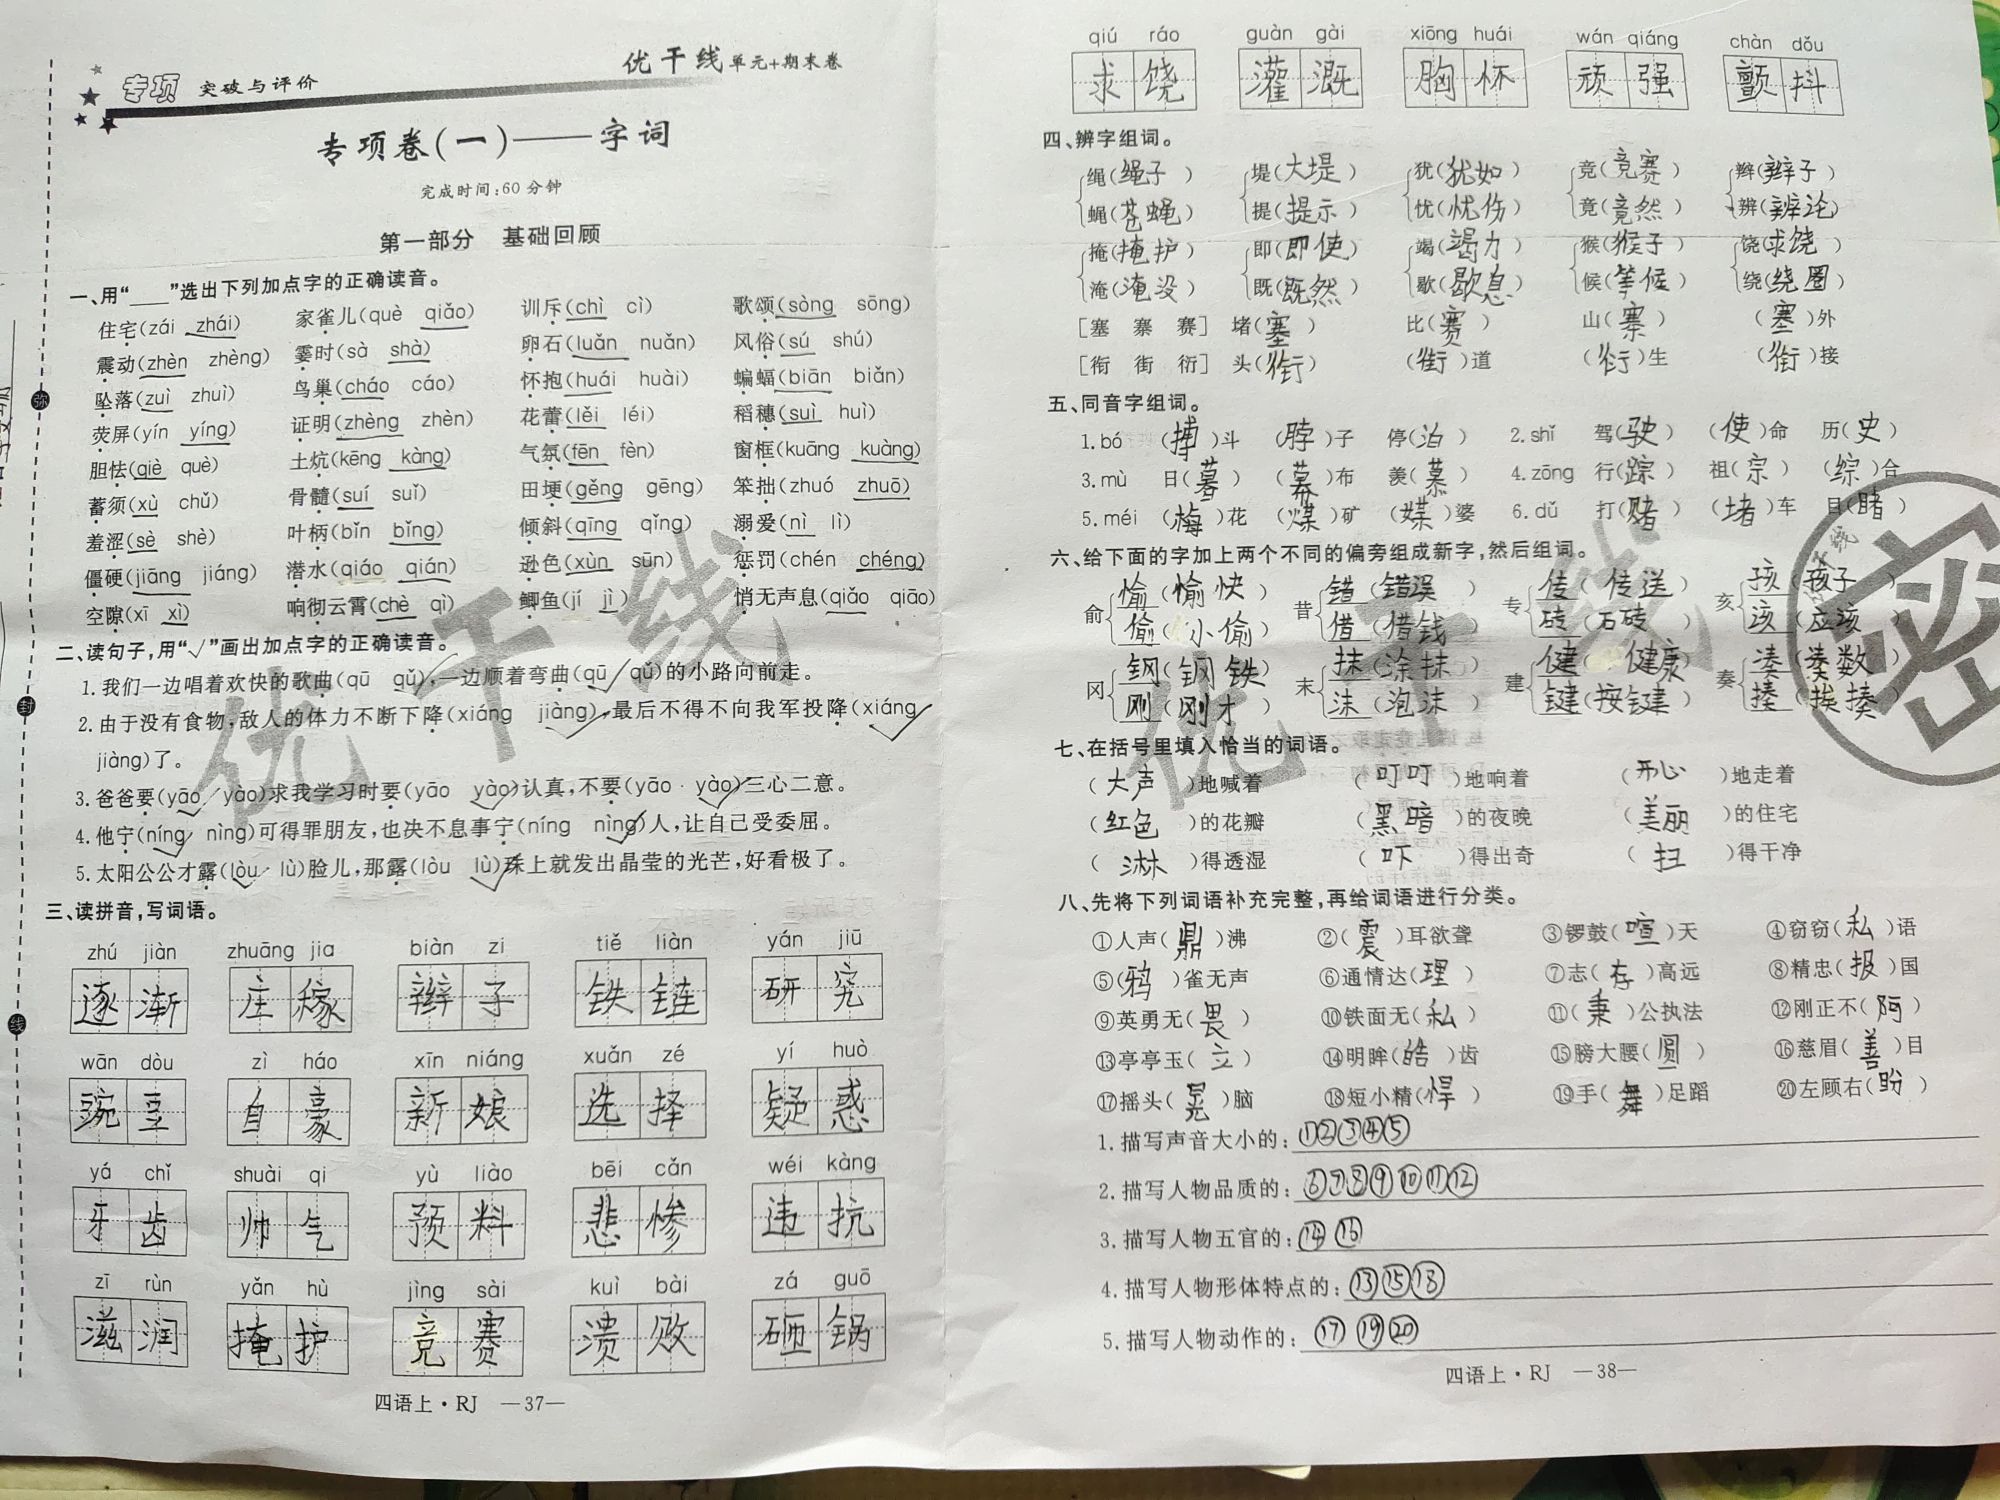 专项 突破与评价
优干线单元+期末卷
专项卷(一)——字词
完成时间:60分钟
第一部分 基础回顾
一、用“____”选出下列加点字的正确读音。
住宅(zái zhái) 家雀儿(què qiǎo) 训斥(chì cì) 歌颂(sòng sōng)
震动(zhèn zhèng) 霎时(sà shà) 卵石(luǎn nuǎn) 风俗(sú shú)
坠落(zuì zhuì) 鸟巢(cháo cáo) 怀抱(huái huài) 蝙蝠(biān biǎn)
荧屏(yín yíng) 证明(zhèng zhèn) 花蕾(lěi léi) 稻穗(suì huì)
胆怯(qiè què) 土炕(kēng kàng) 气氛(fēn fèn) 窗框(kuāng kuàng)
蓄须(xù chǔ) 骨髓(suí suǐ) 田埂(gěng gēng) 笨拙(zhuó zhuō)
羞涩(sè shè) 叶柄(bǐn bǐng) 倾斜(qīng qǐng) 溺爱(nì lì)
僵硬(jiāng jiáng) 潜水(qiáo qián) 逊色(xùn sūn) 惩罚(chén chéng)
空隙(xī xì) 响彻云霄(chè qì) 鲫鱼(jí jì) 悄无声息(qiǎo qiāo)
二、读句子,用“√”画出加点字的正确读音。
1.我们一边唱着欢快的歌曲(qū qǔ√),一边顺着弯曲(qū√ qǔ)的小路向前走。
2.由于没有食物,敌人的体力不断下降(xiáng jiàng√),最后不得不向我军投降(xiáng√
jiàng)了。
3.爸爸要(yāo√ yào)求我学习时要(yāo yào√)认真,不要(yāo yào√)三心二意。
4.他宁(níng nìng√)可得罪朋友,也决不息事宁(níng nìng√)人,让自己受委屈。
5.太阳公公才露(lòu√ lù)脸儿,那露(lòu lù√)珠上就发出晶莹的光芒,好看极了。
三、读拼音,写词语。
zhú jiàn zhuāng jia biàn zi tiě liàn yán jiū
逐渐 庄稼 辫子 铁链 研究
wān dòu zì háo xīn niáng xuǎn zé yí huò
豌豆 自豪 新娘 选择 疑惑
yá chǐ shuài qi yù liào bēi cǎn wéi kàng
牙齿 帅气 预料 悲惨 违抗
zī rùn yǎn hù jìng sài kuì bài zá guō
滋润 掩护 竞赛 溃败 砸锅
四语上·RJ —37—
qiú ráo guàn gài xiōng huái wán qiáng chàn dǒu
求饶 灌溉 胸怀 顽强 颤抖
四、辨字组词。
绳(绳子) 堤(大堤) 犹(犹如) 竞(竞赛) 辫(辫子)
蝇(苍蝇) 提(提示) 忧(忧伤) 竟(竟然) 辨(辨论)
掩(掩护) 即(即使) 竭(竭力) 猴(猴子) 饶(求饶)
淹(淹没) 既(既然) 歇(歇息) 候(等候) 绕(绕圈)
[塞 寨 赛] 堵(塞) 比(赛) 山(寨) (塞)外
[衔 街 衍] 头(衔) (街)道 (衍)生 (衔)接
五、同音字组词。
1.bó (搏)斗 (脖)子 停(泊) 2.shǐ 驾(驶) (使)命 历(史)
3.mù 日(暮) (幕)布 羡(慕) 4.zōng 行(踪) 祖(宗) (综)合
5.méi (梅)花 (煤)矿 (媒)婆 6.dǔ 打(赌) (堵)车 目(睹)
六、给下面的字加上两个不同的偏旁组成新字,然后组词。
俞 愉(愉快) 昔 错(错误) 专 传(传送) 亥 孩(孩子)
偷(小偷) 借(借钱) 砖(石砖) 该(应该)
冈 钢(钢铁) 末 抹(涂抹) 建 健(健康) 奏 凑(凑数)
刚(刚才) 沫(泡沫) 键(按键) 揍(挨揍)
七、在括号里填入恰当的词语。
(大声)地喊着 (叮叮)地响着 (开心)地走着
(红色)的花瓣 (黑暗)的夜晚 (美丽)的住宅
(淋)得透湿 (吓)得出奇 (扫)得干净
八、先将下列词语补充完整,再给词语进行分类。
①人声(鼎)沸 ②(震)耳欲聋 ③锣鼓(喧)天 ④窃窃(私)语
⑤(鸦)雀无声 ⑥通情达(理) ⑦志(存)高远 ⑧精忠(报)国
⑨英勇无(畏) ⑩铁面无(私) ⑪(秉)公执法 ⑫刚正不(阿)
⑬亭亭玉(立) ⑭明眸(皓)齿 ⑮膀大腰(圆) ⑯慈眉(善)目
⑰摇头(晃)脑 ⑱短小精(悍) ⑲手(舞)足蹈 ⑳左顾右(盼)
1.描写声音大小的:①②③④⑤
2.描写人物品质的:⑥⑦⑧⑨⑩⑪⑫
3.描写人物五官的:⑭⑯
4.描写人物形体特点的:⑬⑮⑱
5.描写人物动作的:⑰⑲⑳
四语上·RJ —38—
弥
封
线
优干线
优干线
密